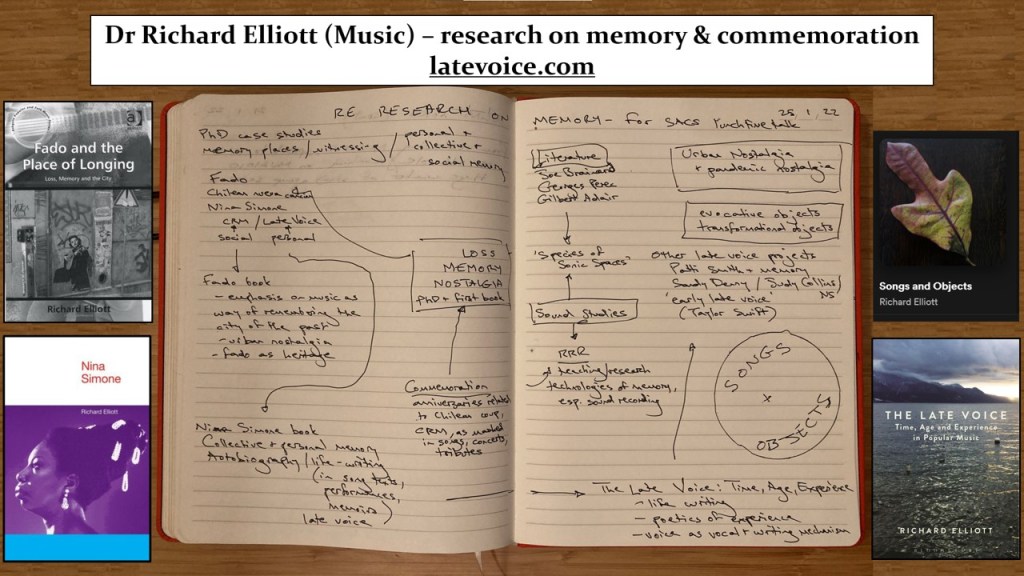 Dr Richard Elliott (Music) – research on memory & commemoration
latevoice.com
Fado and the
Place of Longing
Loss, Memory and the City
Richard Elliott
Nina
Simone
Richard Elliott
RE RESEARCH ON
PhD case studies
memory places / witnessing / personal +
collective +
social memory
Fado
Chilean nueva canción
Nina Simone
CRM / Late Voice
social personal
Fado book
- emphasis on music as
way of remembering the
city of the past
- urban nostalgia
- fado as heritage
LOSS
MEMORY
NOSTALGIA
PhD + first book
Commemoration
anniversaries related
to Chilean coup,
CRM, as marked
in songs, concerts,
tributes
Nina Simone book
Collective + personal memory
Autobiography / life-writing
(in song texts,
performances,
memoirs)
late voice
MEMORY - for SACS lunch five talk
25.1.22
Literature
Joe Brainard
Georges Perec
Gilbert Adair
'Species of
Sonic Spaces'
Sound Studies
RRR
teaching/research
technologies of memory,
esp. sound recording
Urban Nostalgia
+ pandemic nostalgia
evocative objects
transformational objects
Other late voice projects
Patti Smith + memory
Sandy Denny / Judy Collins /
NS
'early late voice'
(Taylor Swift)
SONGS
x
OBJECTS
The Late Voice: Time, Age, Experience
- life writing
- poetics of experience
- voice as vocal + writing mechanism
Songs and Objects
Richard Elliott
THE LATE VOICE
Time, Age and Experience
in Popular Music
RICHARD ELLIOTT